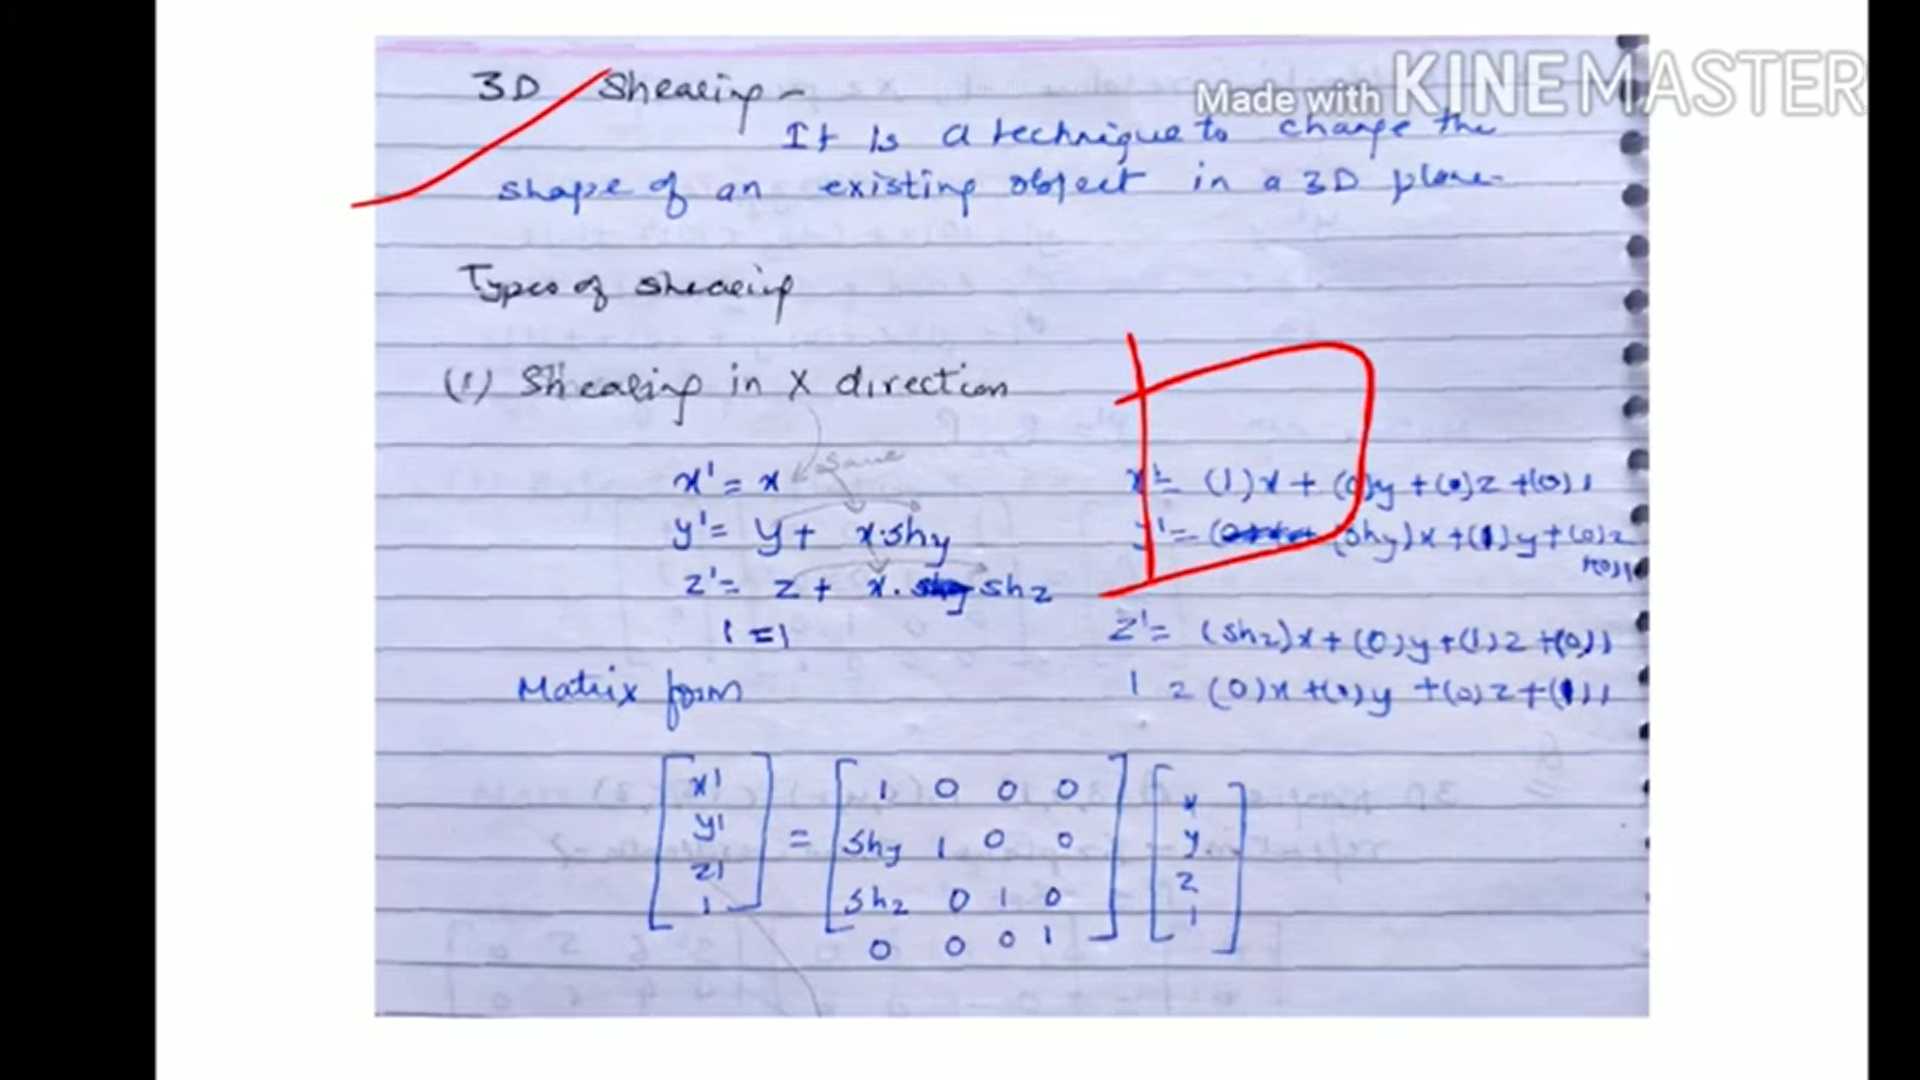 Made with KINEMASTER
3D Shearing -
It is a technique to change the
shape of an existing object in a 3D plane.
Types of shearing
(1) Shearing in X direction
same
x' = x
y' = y + x.shy
z' = z + x. shz
1 = 1
x' = (1)x + (0)y + (0)z + (0)1
y' = (shy)x + (1)y + (0)z
+(0)1
z' = (shz)x + (0)y + (1)z + (0)1
1 = (0)x + (0)y + (0)z + (1)1
Matrix form
[x'] = [1 0 0 0] [x]
[y'] [shy 1 0 0] [y]
[z'] [shz 0 1 0] [z]
[1] [0 0 0 1] [1]